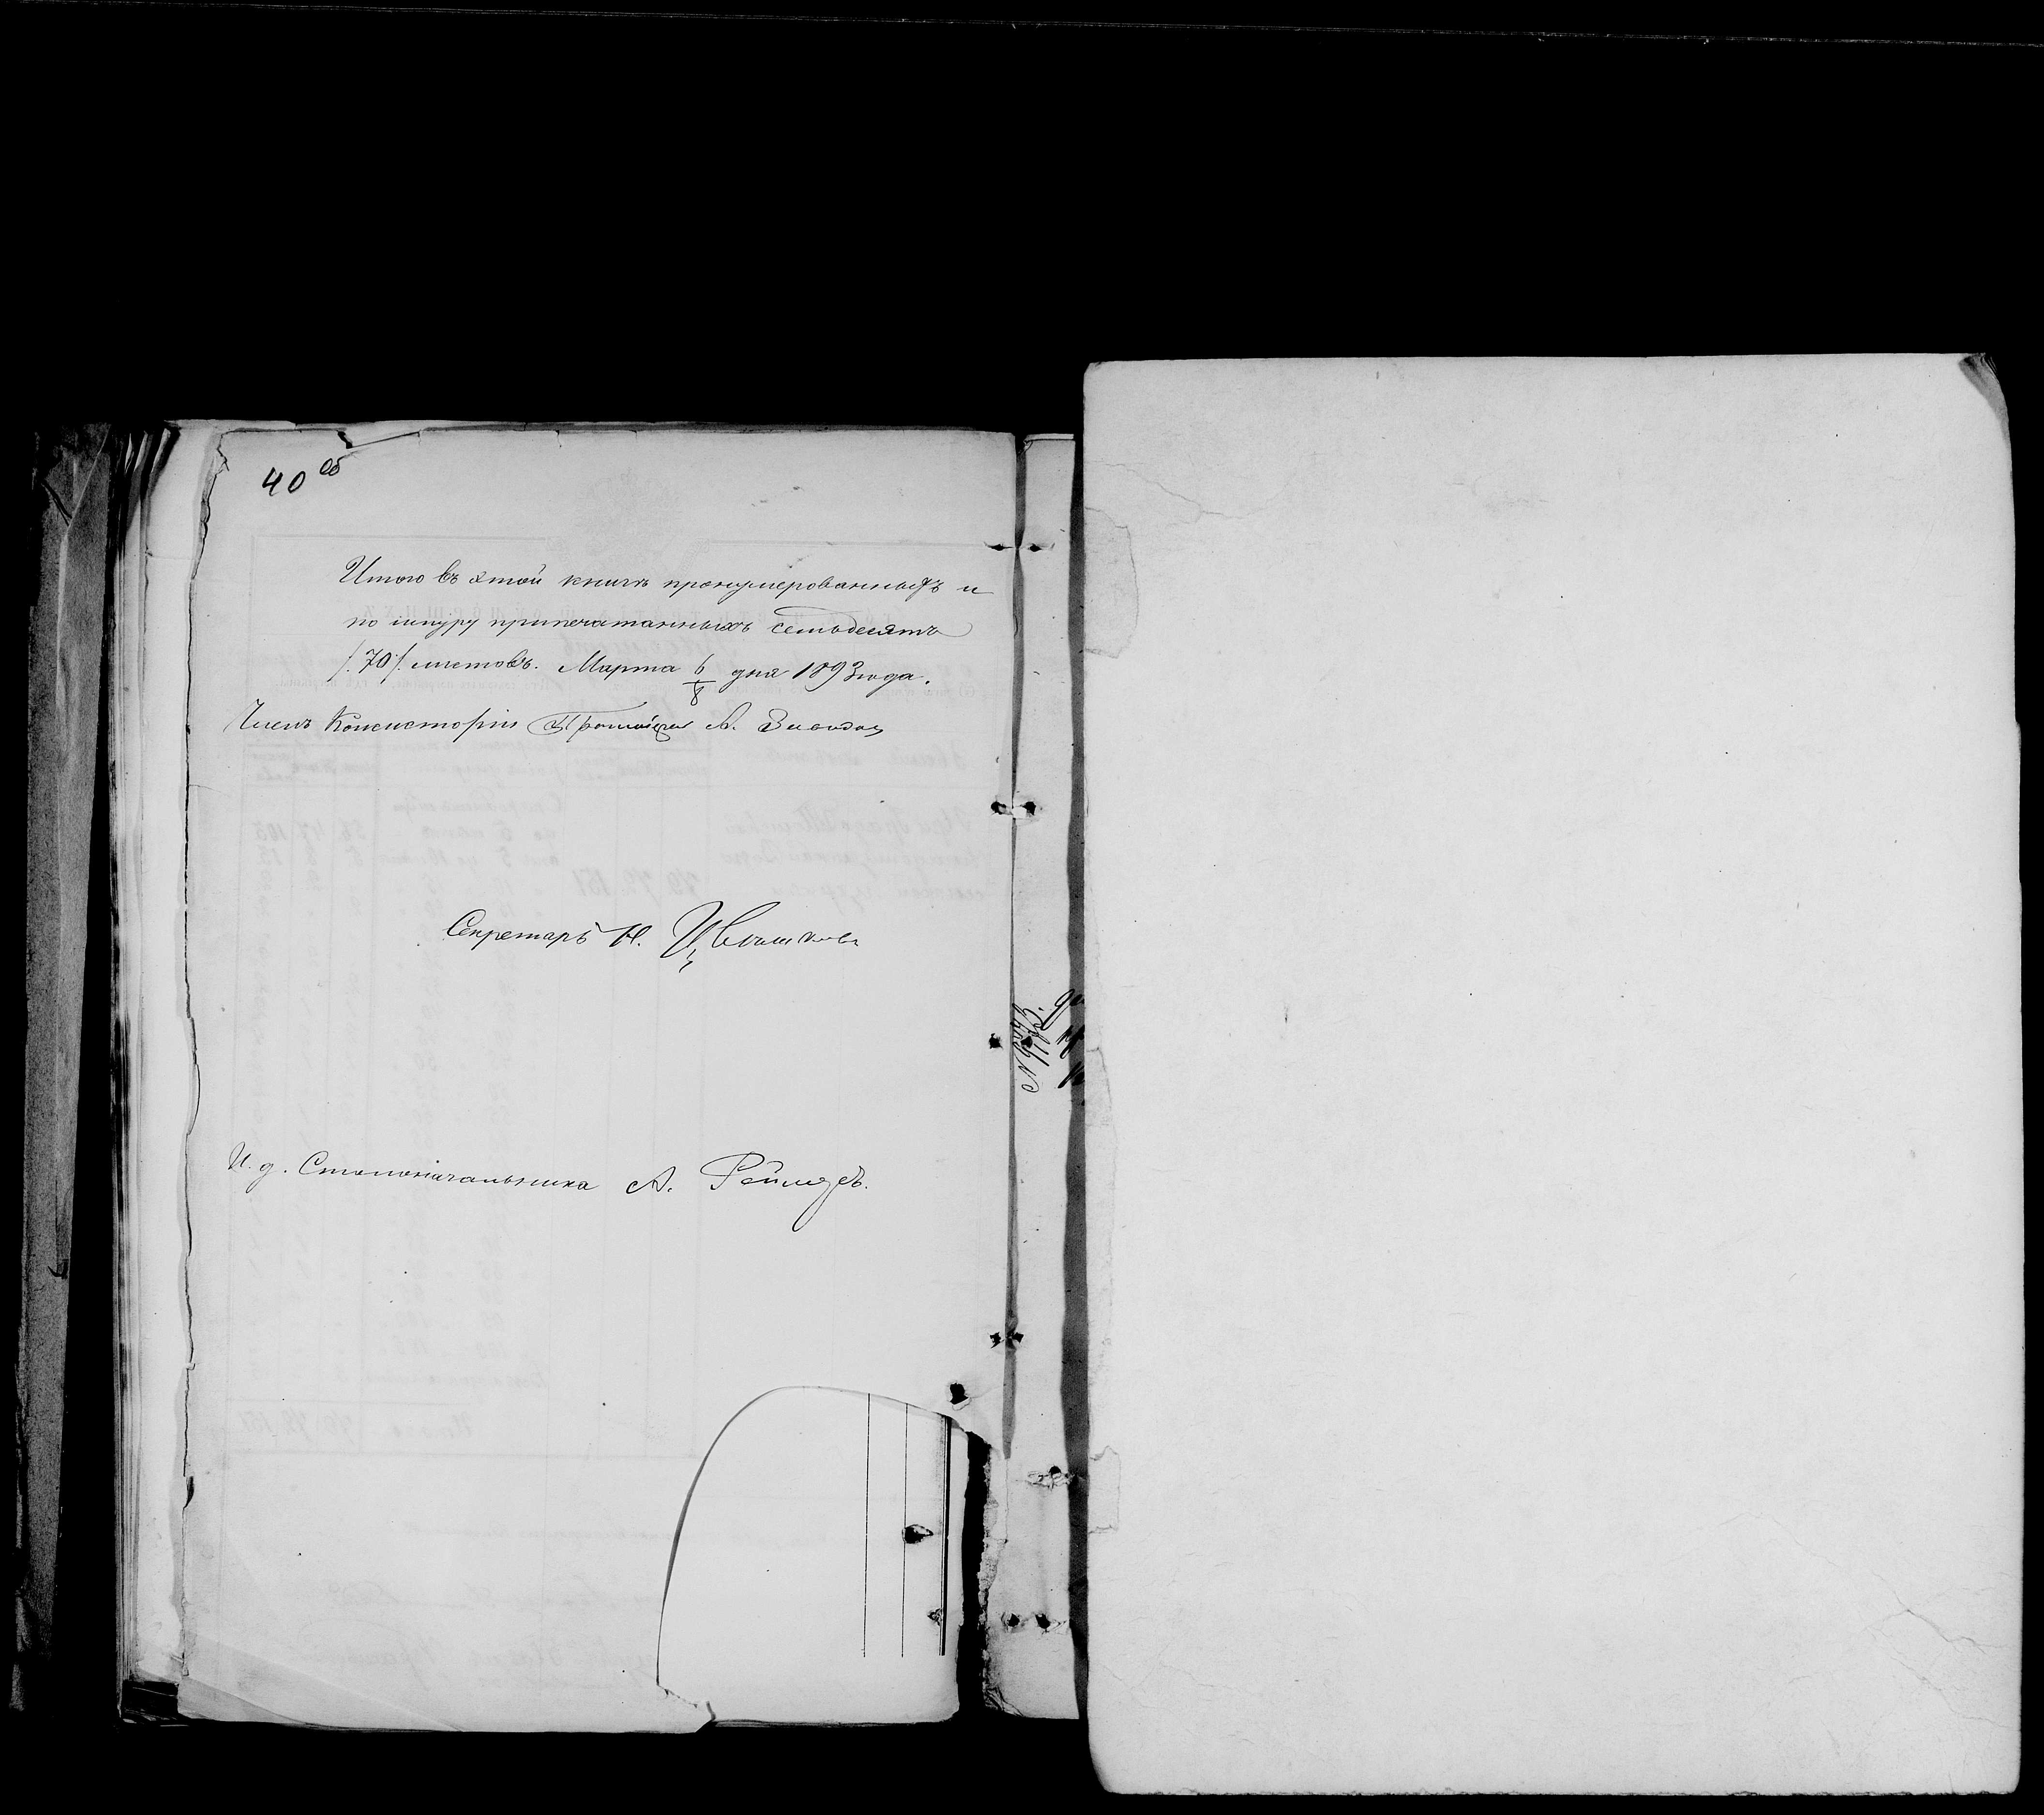 40 об
Итого въ этой книгѣ пронумерованныхъ и
по шнуру припечатанныхъ семьдесятъ
/.70/. листовъ. Марта 6/8 дня 1893 года.
Членъ Консисторіи Протоіерей А.
Секретарь Н. Цвѣтковъ
И. д. Столоначальника А.